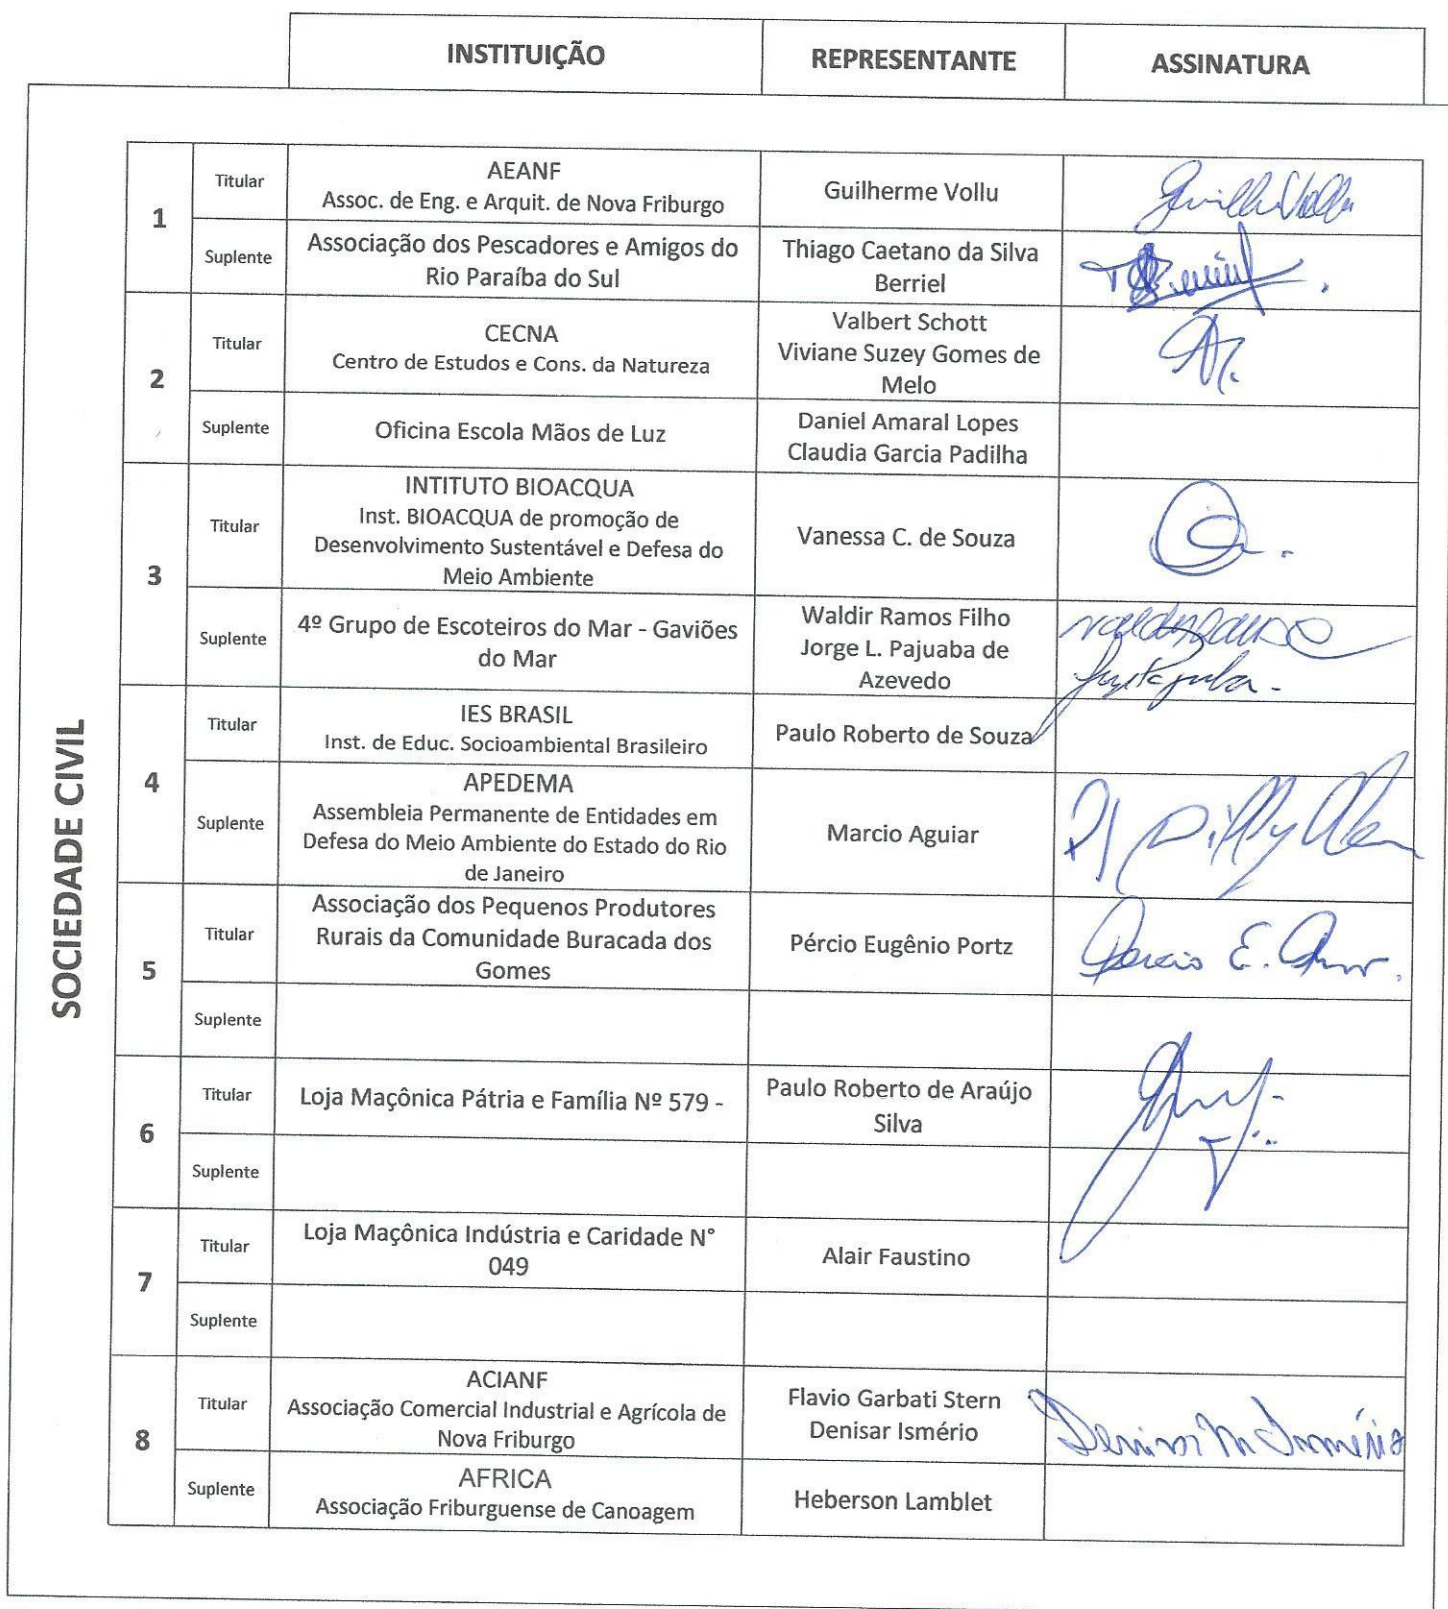 INSTITUIÇÃO REPRESENTANTE ASSINATURA
SOCIEDADE CIVIL
1
Titular
AEANF
Assoc. de Eng. e Arquit. de Nova Friburgo
Guilherme Vollu
Suplente
Associação dos Pescadores e Amigos do
Rio Paraíba do Sul
Thiago Caetano da Silva
Berriel
2
Titular
CECNA
Centro de Estudos e Cons. da Natureza
Valbert Schott
Viviane Suzey Gomes de
Melo
Suplente
Oficina Escola Mãos de Luz
Daniel Amaral Lopes
Claudia Garcia Padilha
3
Titular
INTITUTO BIOACQUA
Inst. BIOACQUA de promoção de
Desenvolvimento Sustentável e Defesa do
Meio Ambiente
Vanessa C. de Souza
Suplente
4º Grupo de Escoteiros do Mar - Gaviões
do Mar
Waldir Ramos Filho
Jorge L. Pajuaba de
Azevedo
4
Titular
IES BRASIL
Inst. de Educ. Socioambiental Brasileiro
Paulo Roberto de Souza
Suplente
APEDEMA
Assembleia Permanente de Entidades em
Defesa do Meio Ambiente do Estado do Rio
de Janeiro
Marcio Aguiar
5
Titular
Associação dos Pequenos Produtores
Rurais da Comunidade Buracada dos
Gomes
Pércio Eugênio Portz
Suplente
6
Titular
Loja Maçônica Pátria e Família Nº 579 -
Paulo Roberto de Araújo
Silva
Suplente
7
Titular
Loja Maçônica Indústria e Caridade N°
049
Alair Faustino
Suplente
8
Titular
ACIANF
Associação Comercial Industrial e Agrícola de
Nova Friburgo
Flavio Garbati Stern
Denisar Ismério
Suplente
AFRICA
Associação Friburguense de Canoagem
Heberson Lamblet